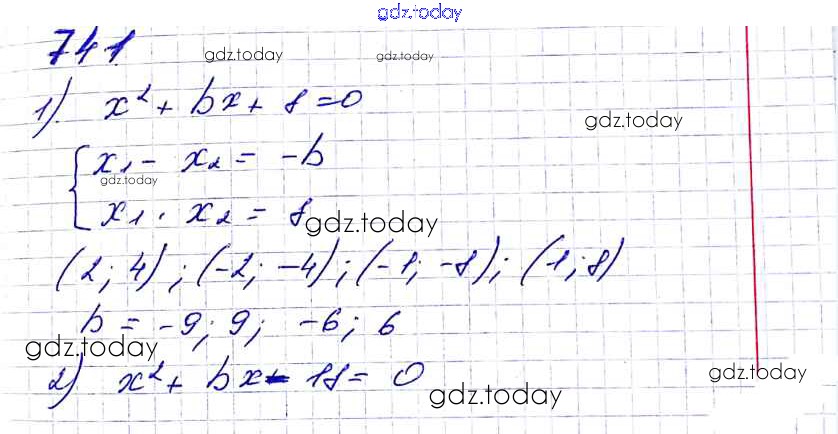 gdz.today
741
gdz.today gdz.today
1). x² + bx + 8 = 0
gdz.today
{ x₁ - x₂ = -b
gdz.today
x₁ · x₂ = 8
gdz.today
(2; 4); (-2; -4); (-1; -8); (1; 8)
b = -9; 9; -6; 6
gdz.today
2) x² + bx - 18 = 0
gdz.today
gdz.today